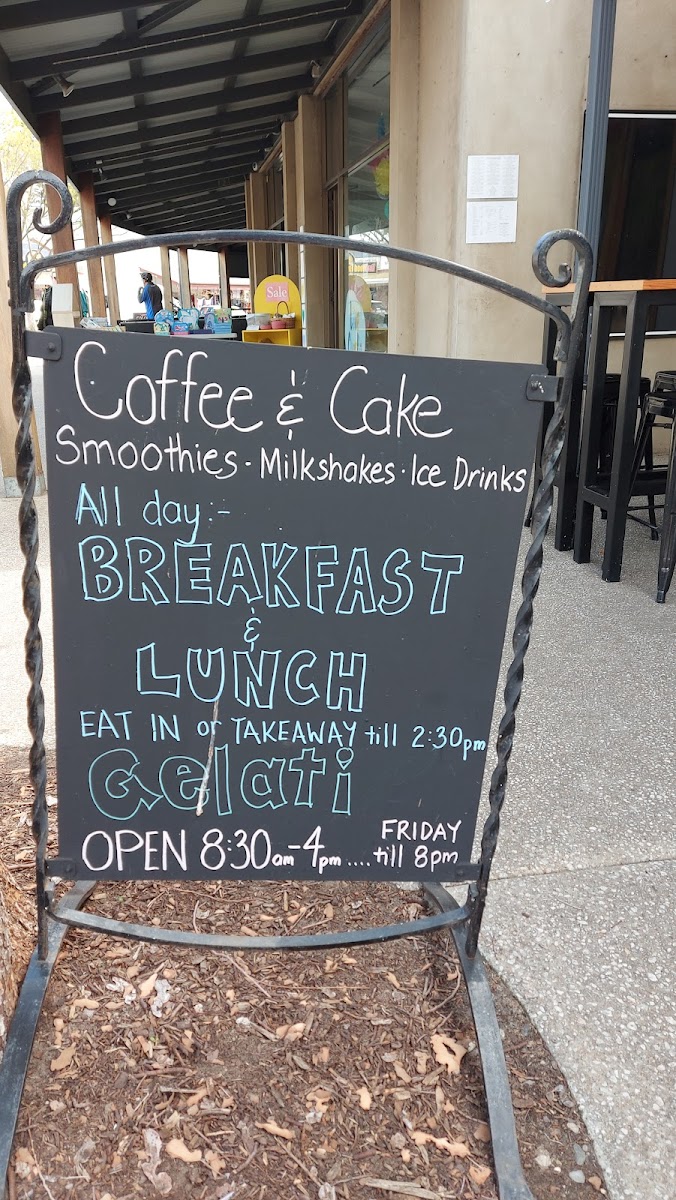 Sale
Coffee & Cake
Smoothies · Milkshakes · Ice Drinks
All day:-
BREAKFAST
&
LUNCH
EAT IN or TAKEAWAY till 2:30pm
Gelati
OPEN 8:30am-4pm .... FRIDAY till 8pm